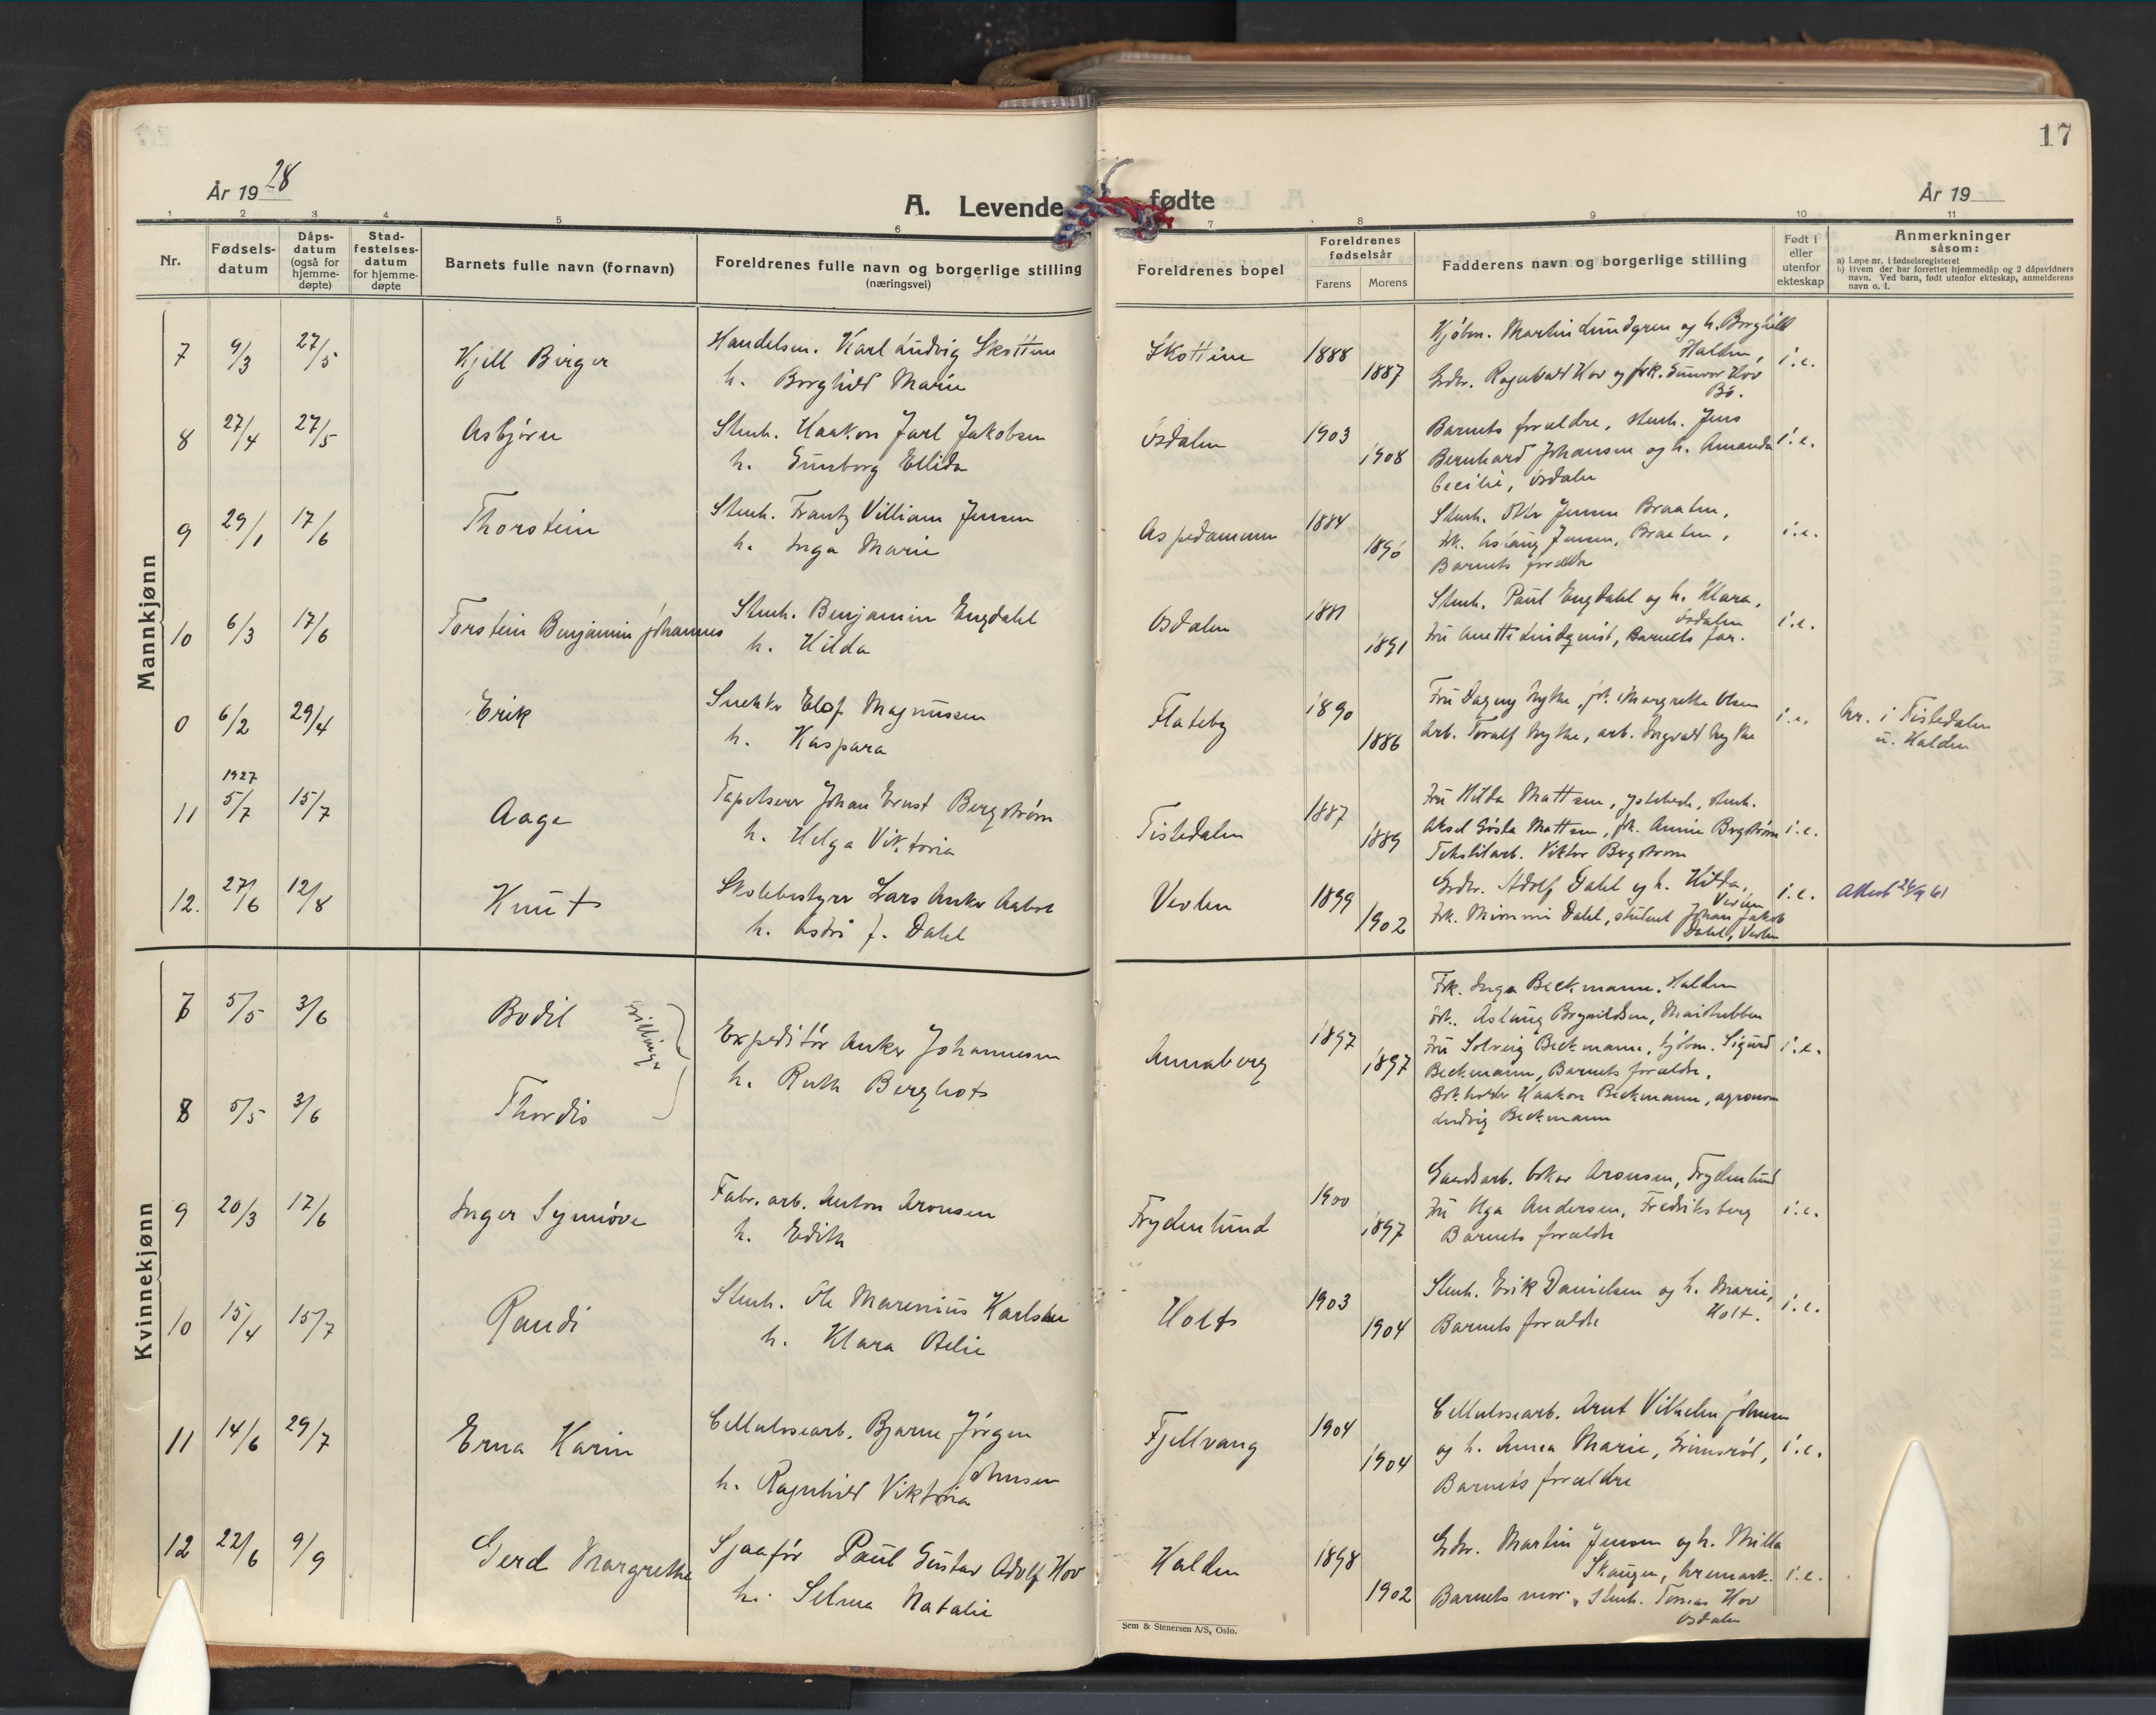 17
År 1928
A. Levende fødte
År 19
1 2 3 4 5 6 7 8 9 10 11
Nr.
Fødsels-
datum
Dåps-
datum
(også for
hjemme-
døpte)
Stad-
festelses-
datum
for hjemme-
døpte
Barnets fulle navn (fornavn)
Foreldrenes fulle navn og borgerlige stilling
(næringsvei)
Foreldrenes bopel
Foreldrenes
fødselsår
Farens
Morens
Fadderens navn og borgerlige stilling
Født i
eller
utenfor
ekteskap
Anmerkninger
såsom:
a) Løpe nr. i fødselsregisteret
b) Hvem der har forrettet hjemmedåp og 2 dåpsvidners
navn. Ved barn, født utenfor ekteskap, anmelderens
navn o. l.
Mannkjønn
7 9/3 27/5 Kjell Birger
Handelsm. Karl Ludvig Skotten
h. Borghild Marie
1888
1887
Kjøbm. Martin Lundgren og h. Borghild
Halden,
Grdbr. Ragnvald Hov og frk. Gunvor Hov
Bø.
i.e.
8 27/4 27/5 Asbjørn
Stenh. Haakon Jarl Jakobsen
h. Gunborg Ellida
Ösdalen
1903
1908
Barnets foreldre, stenh. Jens
Bernhard Johansen og h. Amanda
Cecilie, Ösdalen
i.e.
9 29/1 17/6 Thorstein
Stenh. Frantz Villiam Jensen
h. Inga Marie
Aspedammen
1884
1890
Stenh. Otto Jensen Braaten,
frk. Aslaug Jensen, Braaten,
Barnets foreldre
i.e.
10 6/3 17/6 Torstein Benjamin Johannes
Stenh. Benjamin Engdahl
h. Hilda
Ösdalen
1881
1891
Stenh. Paul Engdahl og h. Klara,
Ösdalen
fru Anette Lindqvist, Barnets far.
i.e.
0 6/2 29/4 Erik
Snekker Elof Magnussen
h. Kaspara
Flateby
1890
1886
Fru Dagny Myhre, frk. Margrethe Olsen
arb. Toralf Myhre, arb. Ingvald Myhre
i.e.
nr. i Tistedalen
u. Halden
1927
11 5/7 15/7 Aage
Tapetserer Johan Ernst Bergstrøm
h. Helga Viktoria
Tistedalen
1887
1889
Fru Hilda Mattsen,
Aksel Gösta Mattsen, frk. Annie Bergstrøm
Tekstilarb. Viktor Bergstrøm
i.e.
12. 27/6 12/8 Knut
Skolebestyrer Lars Anker
h. Astri f. Dahl
Vevlen
1899
1902
Grdbr. Adolf Dahl og h. Hilda,
Vevlen
frk. Mimmi Dahl, student Johan Jakob
Dahl, Vevlen
i.e.
Attest 24/9 61
Kvinnekjønn
7 5/5 3/6 Bodil
Tvillinger
8 5/5 3/6 Thordis
Expeditör Anker Johannesen
h. Ruth Berghot
Annaberg
1897
1897
Frk. Inga Beckmann. Halden
frk. Aslaug Brynildsen,
Fru Solveig Beckmann, kjøbm. Sigurd
Beckmann, Barnets foreldre,
Bokholder Haakon Beckmann, agronom
Ludvig Beckmann
i.e.
9 20/3 17/6 Inger Synnöve
Fabr. arb. Anton Aronsen
h. Edith
Frydenlund
1900
1897
Gaardsarb. Oskar Aronsen, Frydenlund
Fru Olga Andersen, Fredriksberg
Barnets foreldre
i.e.
10 15/4 15/7 Randi
Stenh. Ole Marenius Karlsen
h. Klara Otelie
Holt
1903
1904
Stenh. Erik Danielsen og h. Marie,
Holt.
Barnets foreldre
i.e.
11 14/6 29/7 Erna Karin
Cellulosearb. Bjarne Jörgen
Johnsen
h. Ragnhild Viktoria
Fjellvang
1904
1904
Cellulosearb. Arnt Vilhelm Johnsen
og h. Anna Marie, Grimsröd,
Barnets foreldre
i.e.
12 22/6 9/9 Gerd Margrethe
Sjaaför Paul Gustav Adolf Hov
h. Selma Natalie
Halden
1898
1902
Grdbr. Martin Jensen og h. Milla
Skaugen, Aremark.
Barnets mor, Stenh. Tomas Hov
Ösdalen
i.e.
Sem & Stenersen A/S, Oslo.